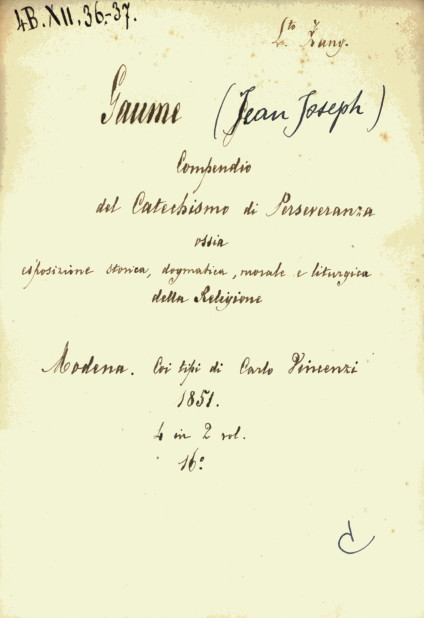 4B.XII,36.-37.
Gaume (Jean Joseph)
Compendio
del Catechismo di Perseveranza
ossia
esposizione storica, dogmatica, morale e liturgica
della Religione
Modena. Coi tipi di Carlo Vincenzi
1851.
4 in 2 vol.
16º